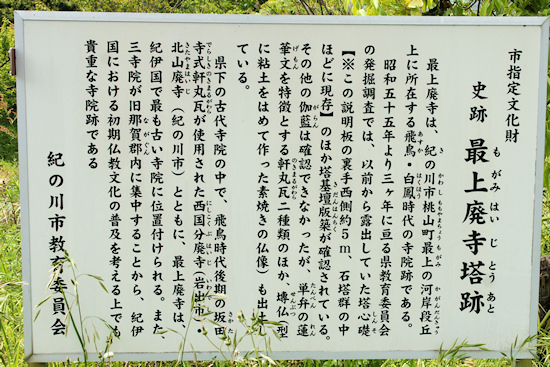 市指定文化財
史跡 最上廃寺塔跡
も がみ はい じ とう あと
最上廃寺は、紀の川市桃山町最上の河岸段丘
上に所在する飛鳥・白鳳時代の寺院跡である。
昭和五十五年より三ヶ年に亘る県教育委員会
の発掘調査では、以前から露出していた塔心礎
【※この説明板の裏手西側約5m、石塔群の中
ほどに現存】のほか塔基壇版築が確認されている。
その他の伽藍は確認できなかったが、単弁の蓮
華文を特徴とする軒丸瓦二種類のほか、塼仏（型
に粘土をはめて作った素焼きの仏像）も出土し
ている。
県下の古代寺院の中で、飛鳥時代後期の坂田
寺式軒丸瓦が使用された西国分廃寺（岩出市）・
北山廃寺（紀の川市）とともに、最上廃寺は、
紀伊国で最も古い寺院に位置付けられる。また、
三寺院が旧那賀郡内に集中することから、紀伊
国における初期仏教文化の普及を考える上でも
貴重な寺院跡である
紀の川市教育委員会